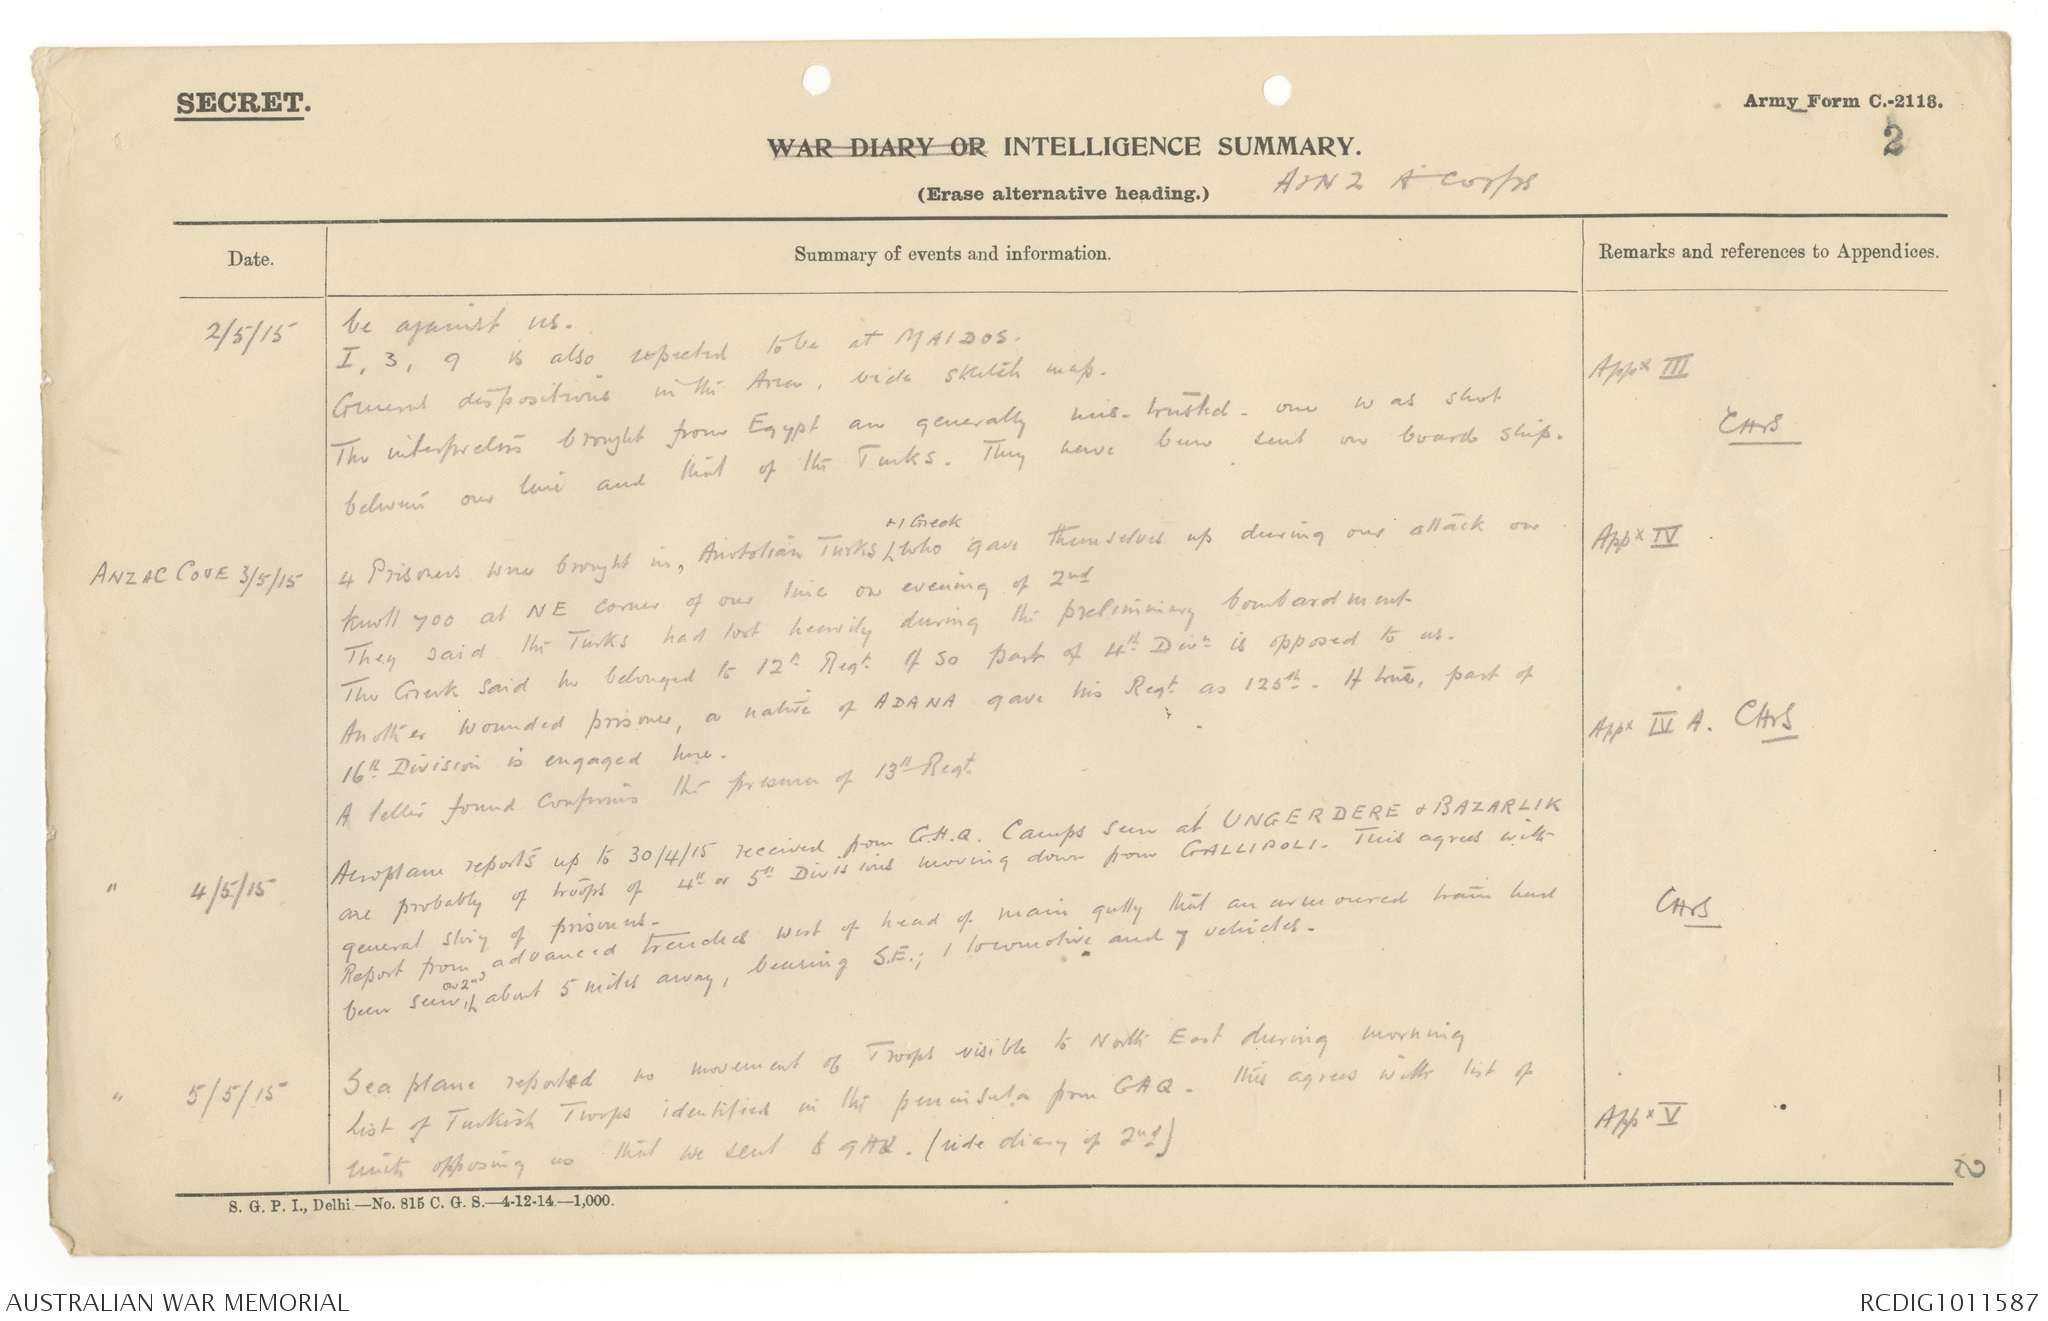 SECRET.
Army Form C.-2118.
2
WAR DIARY OR INTELLIGENCE SUMMARY.
(Erase alternative heading.)
A & N Z A Corps
Date.
Summary of events and information.
Remarks and references to Appendices.
2/5/15
be against us.
I, 3, 9 is also reported to be at MAIDOS.
General dispositions in the Area, vide sketch map.
Appx III
The interpreters brought from Egypt are generally mis-trusted - one was shot
between our line and that of the Turks. They have been sent on board ship.
CHvS
ANZAC COVE 3/5/15
4 Prisoners were brought in, Anatolian Turks + 1 Greek who gave themselves up during our attack on
Appx IV
Knoll 700 at NE corner of our line on evening of 2nd
They said the Turks had lost heavily during the preliminary bombardment
The Greek said he belonged to 12th Regt. If so part of 4th Divn is opposed to us.
Another wounded prisoner, a native of ADANA gave his Regt. as 125th. If true, part of
16th Division is engaged here.
Appx IV A. CHvS
A letter found confirms the presence of 13th Regt.
" 4/5/15
Aeroplane reports up to 30/4/15 received from G.H.Q. Camps seen at UNGERDERE & BAZARLIK
are probably of troops of 4th or 5th Divisions moving down from GALLIPOLI. This agrees with
general story of prisoners.
CHvS
Report from advanced trenches west of head of main gully that an armoured train had
been seen, on 2nd about 5 miles away, bearing S.E.; 1 locomotive and 7 vehicles.
" 5/5/15
Sea plane reported no movement of Troops visible to North East during morning
List of Turkish Troops identified in the peninsula from GHQ. This agrees with list of
Appx V
units opposing us that we sent to GHQ. (vide diary of 2nd)
25
S. G. P. I., Delhi—No. 815 C. G. S.—4-12-14—1,000.
AUSTRALIAN WAR MEMORIAL
RCDIG1011587